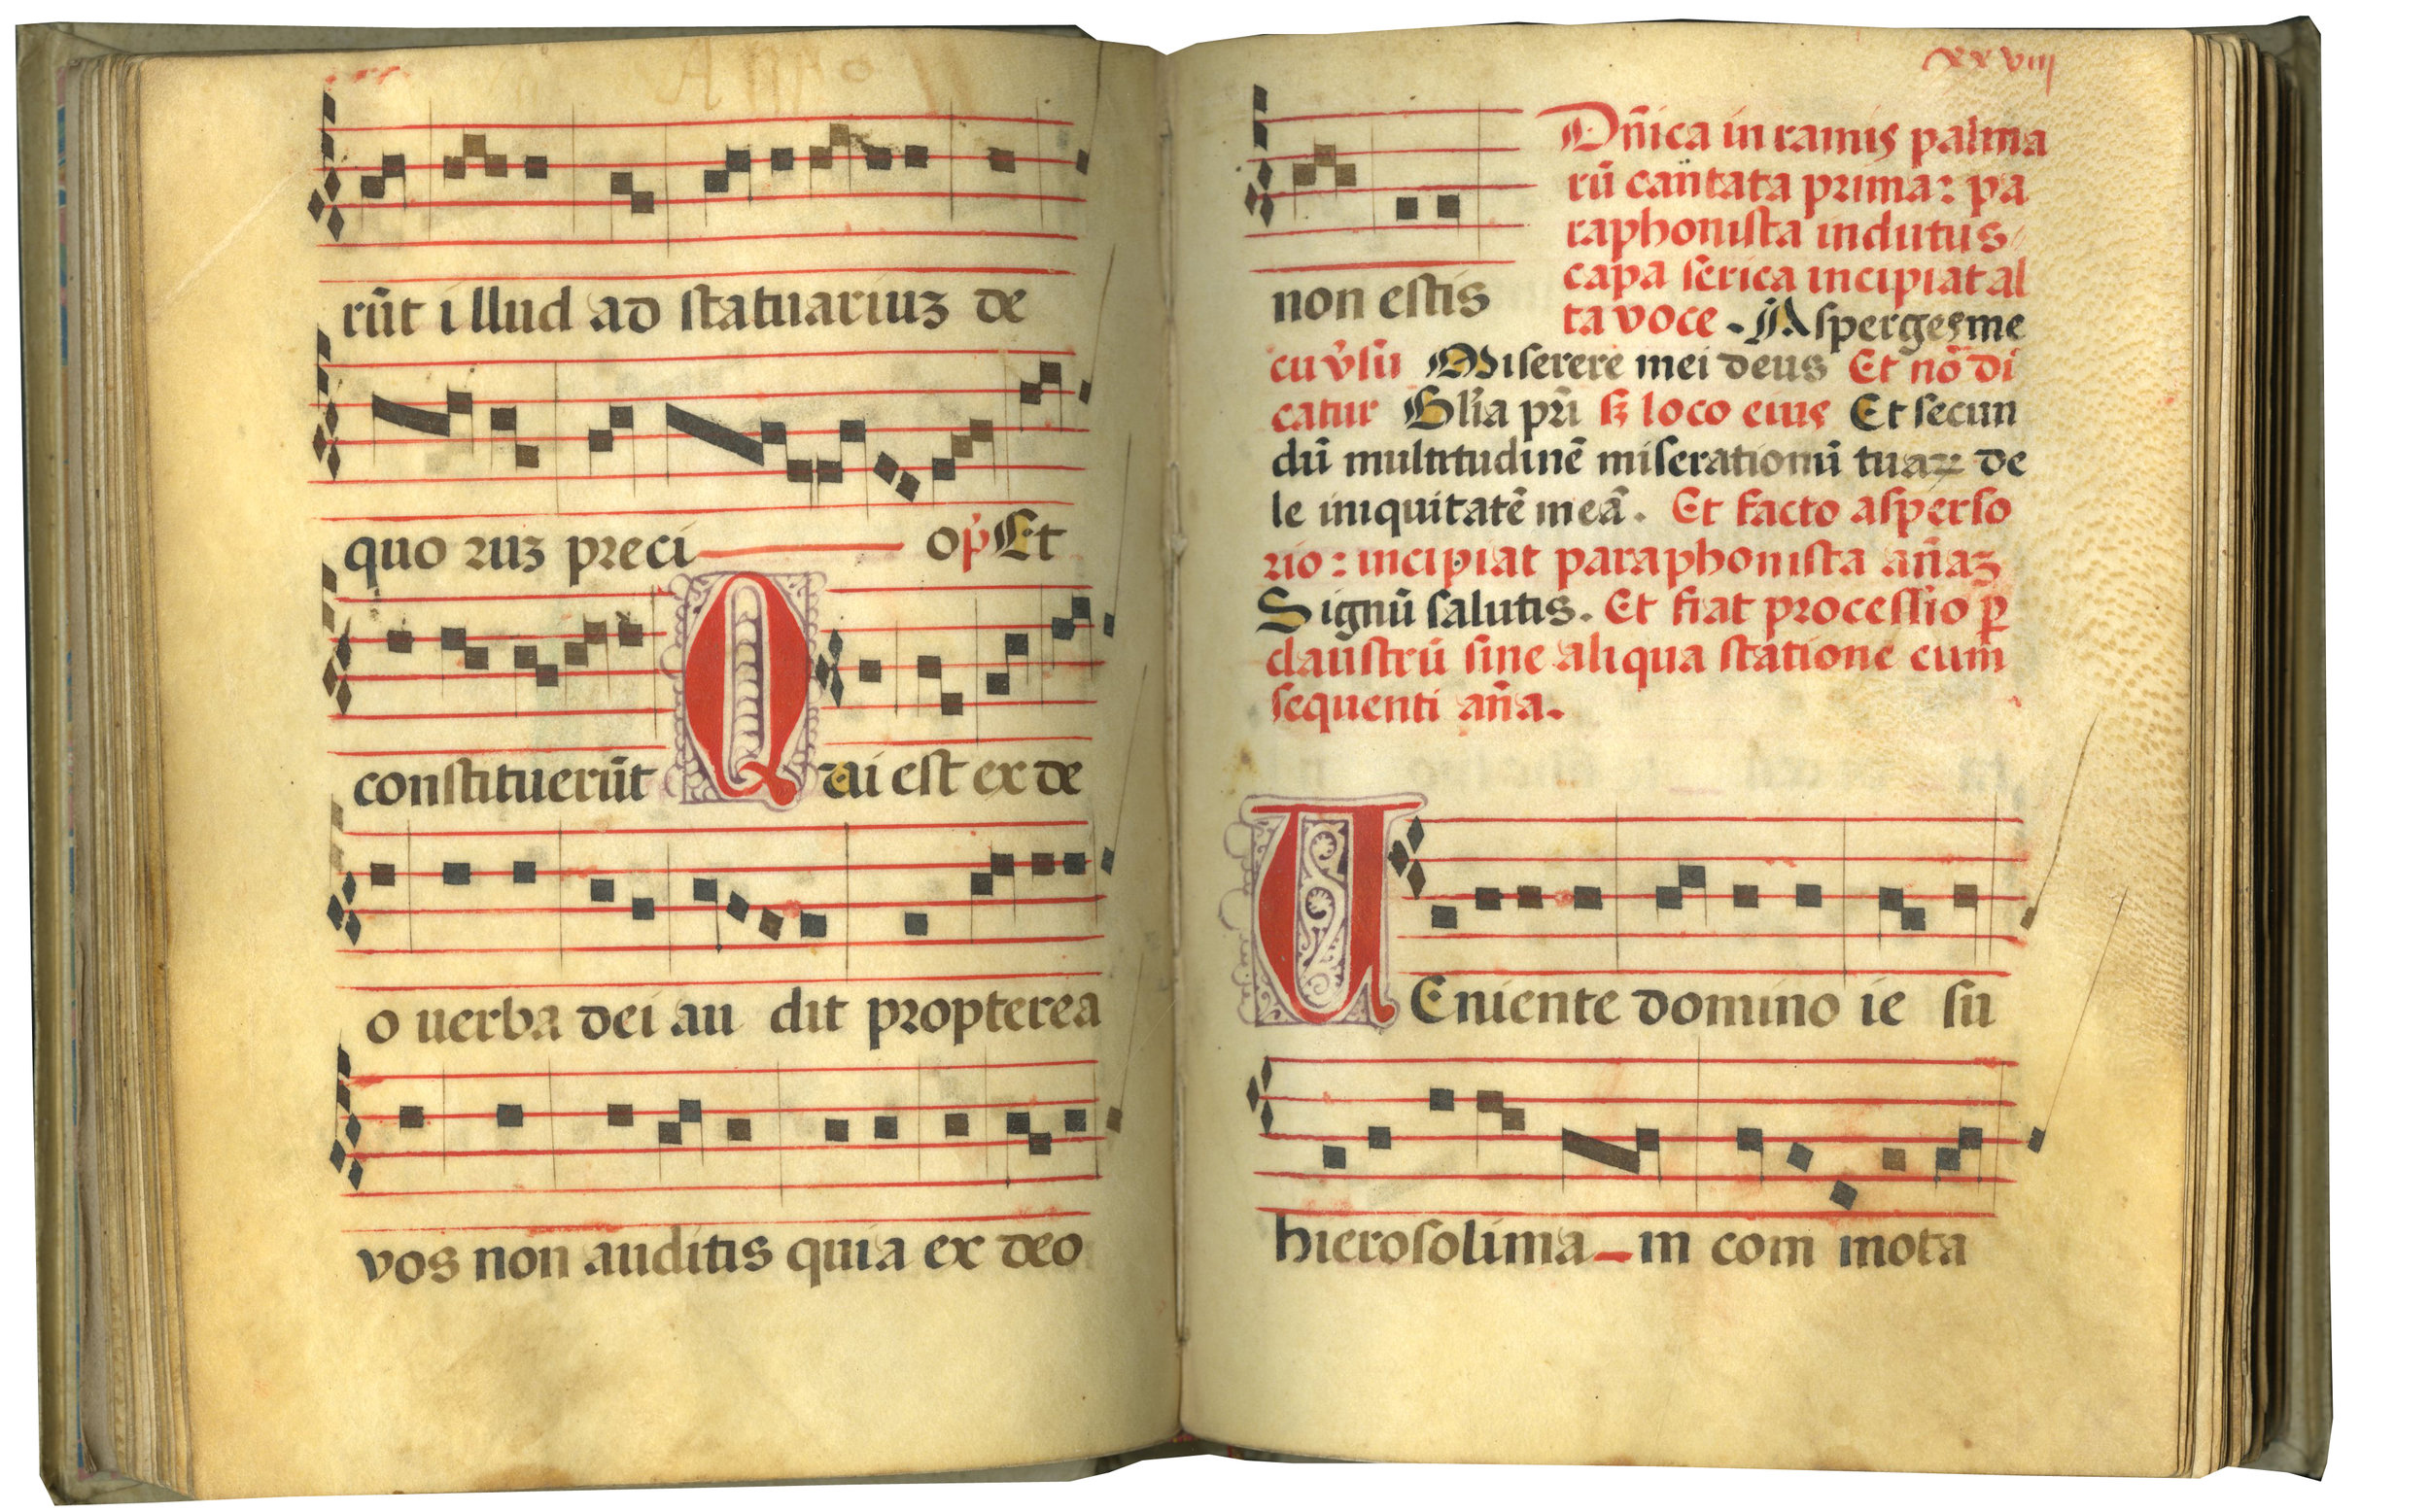 rūt illud ad statuariuʒ de
quo ruʒ preci op̄ Et
constituerūt Qui est ex de
o uerba dei au dit propterea
vos non auditis quia ex deo
xxviij
non estis
Dn̄ica in ramis palma
rū cantata prima: pa
raphonista indutus
capa serica incipiat al
ta voce. Asperges me
cū v̓sū Miserere mei deus Et nō di
catur Gl̄ia pr̄i sꝫ loco eius Et secun
dū multitudinē miserationū tuaꝝ de
le iniquitatē meā. Et facto asperso
rio: incipiat paraphonista an̄aʒ
Signū salutis. Et fiat processio ꝑ
claustrū sine aliqua statione cum
sequenti an̄a.
UEniente domino ie su
hierosolima m com mota